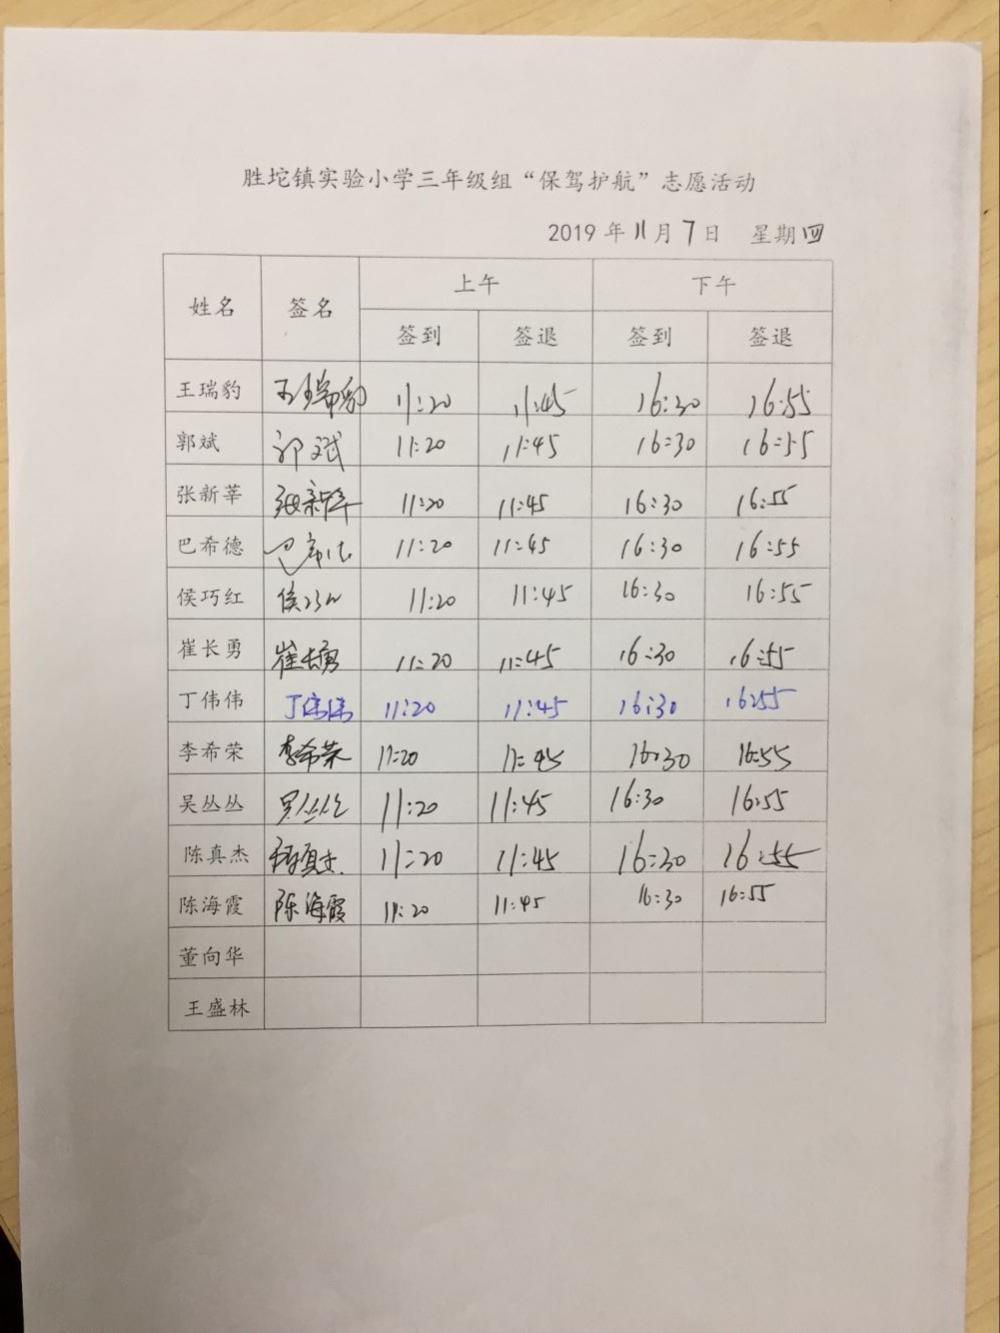 胜坨镇实验小学三年级组“保驾护航”志愿活动
2019 年 11 月 7 日 星期四
姓名 签名 上午 下午
签到 签退 签到 签退
王瑞豹 王瑞豹 11:20 11:45 16:30 16:55
郭斌 郭斌 11:20 11:45 16:30 16:55
张新莘 张新莘 11:20 11:45 16:30 16:55
巴希德 巴希德 11:20 11:45 16:30 16:55
侯巧红 侯巧红 11:20 11:45 16:30 16:55
崔长勇 崔长勇 11:20 11:45 16:30 16:55
丁伟伟 丁伟伟 11:20 11:45 16:30 16:55
李希荣 李希荣 11:20 11:45 16:30 16:55
吴丛丛 吴丛丛 11:20 11:45 16:30 16:55
陈真杰 陈真杰 11:20 11:45 16:30 16:55
陈海霞 陈海霞 11:20 11:45 16:30 16:55
董向华
王盛林